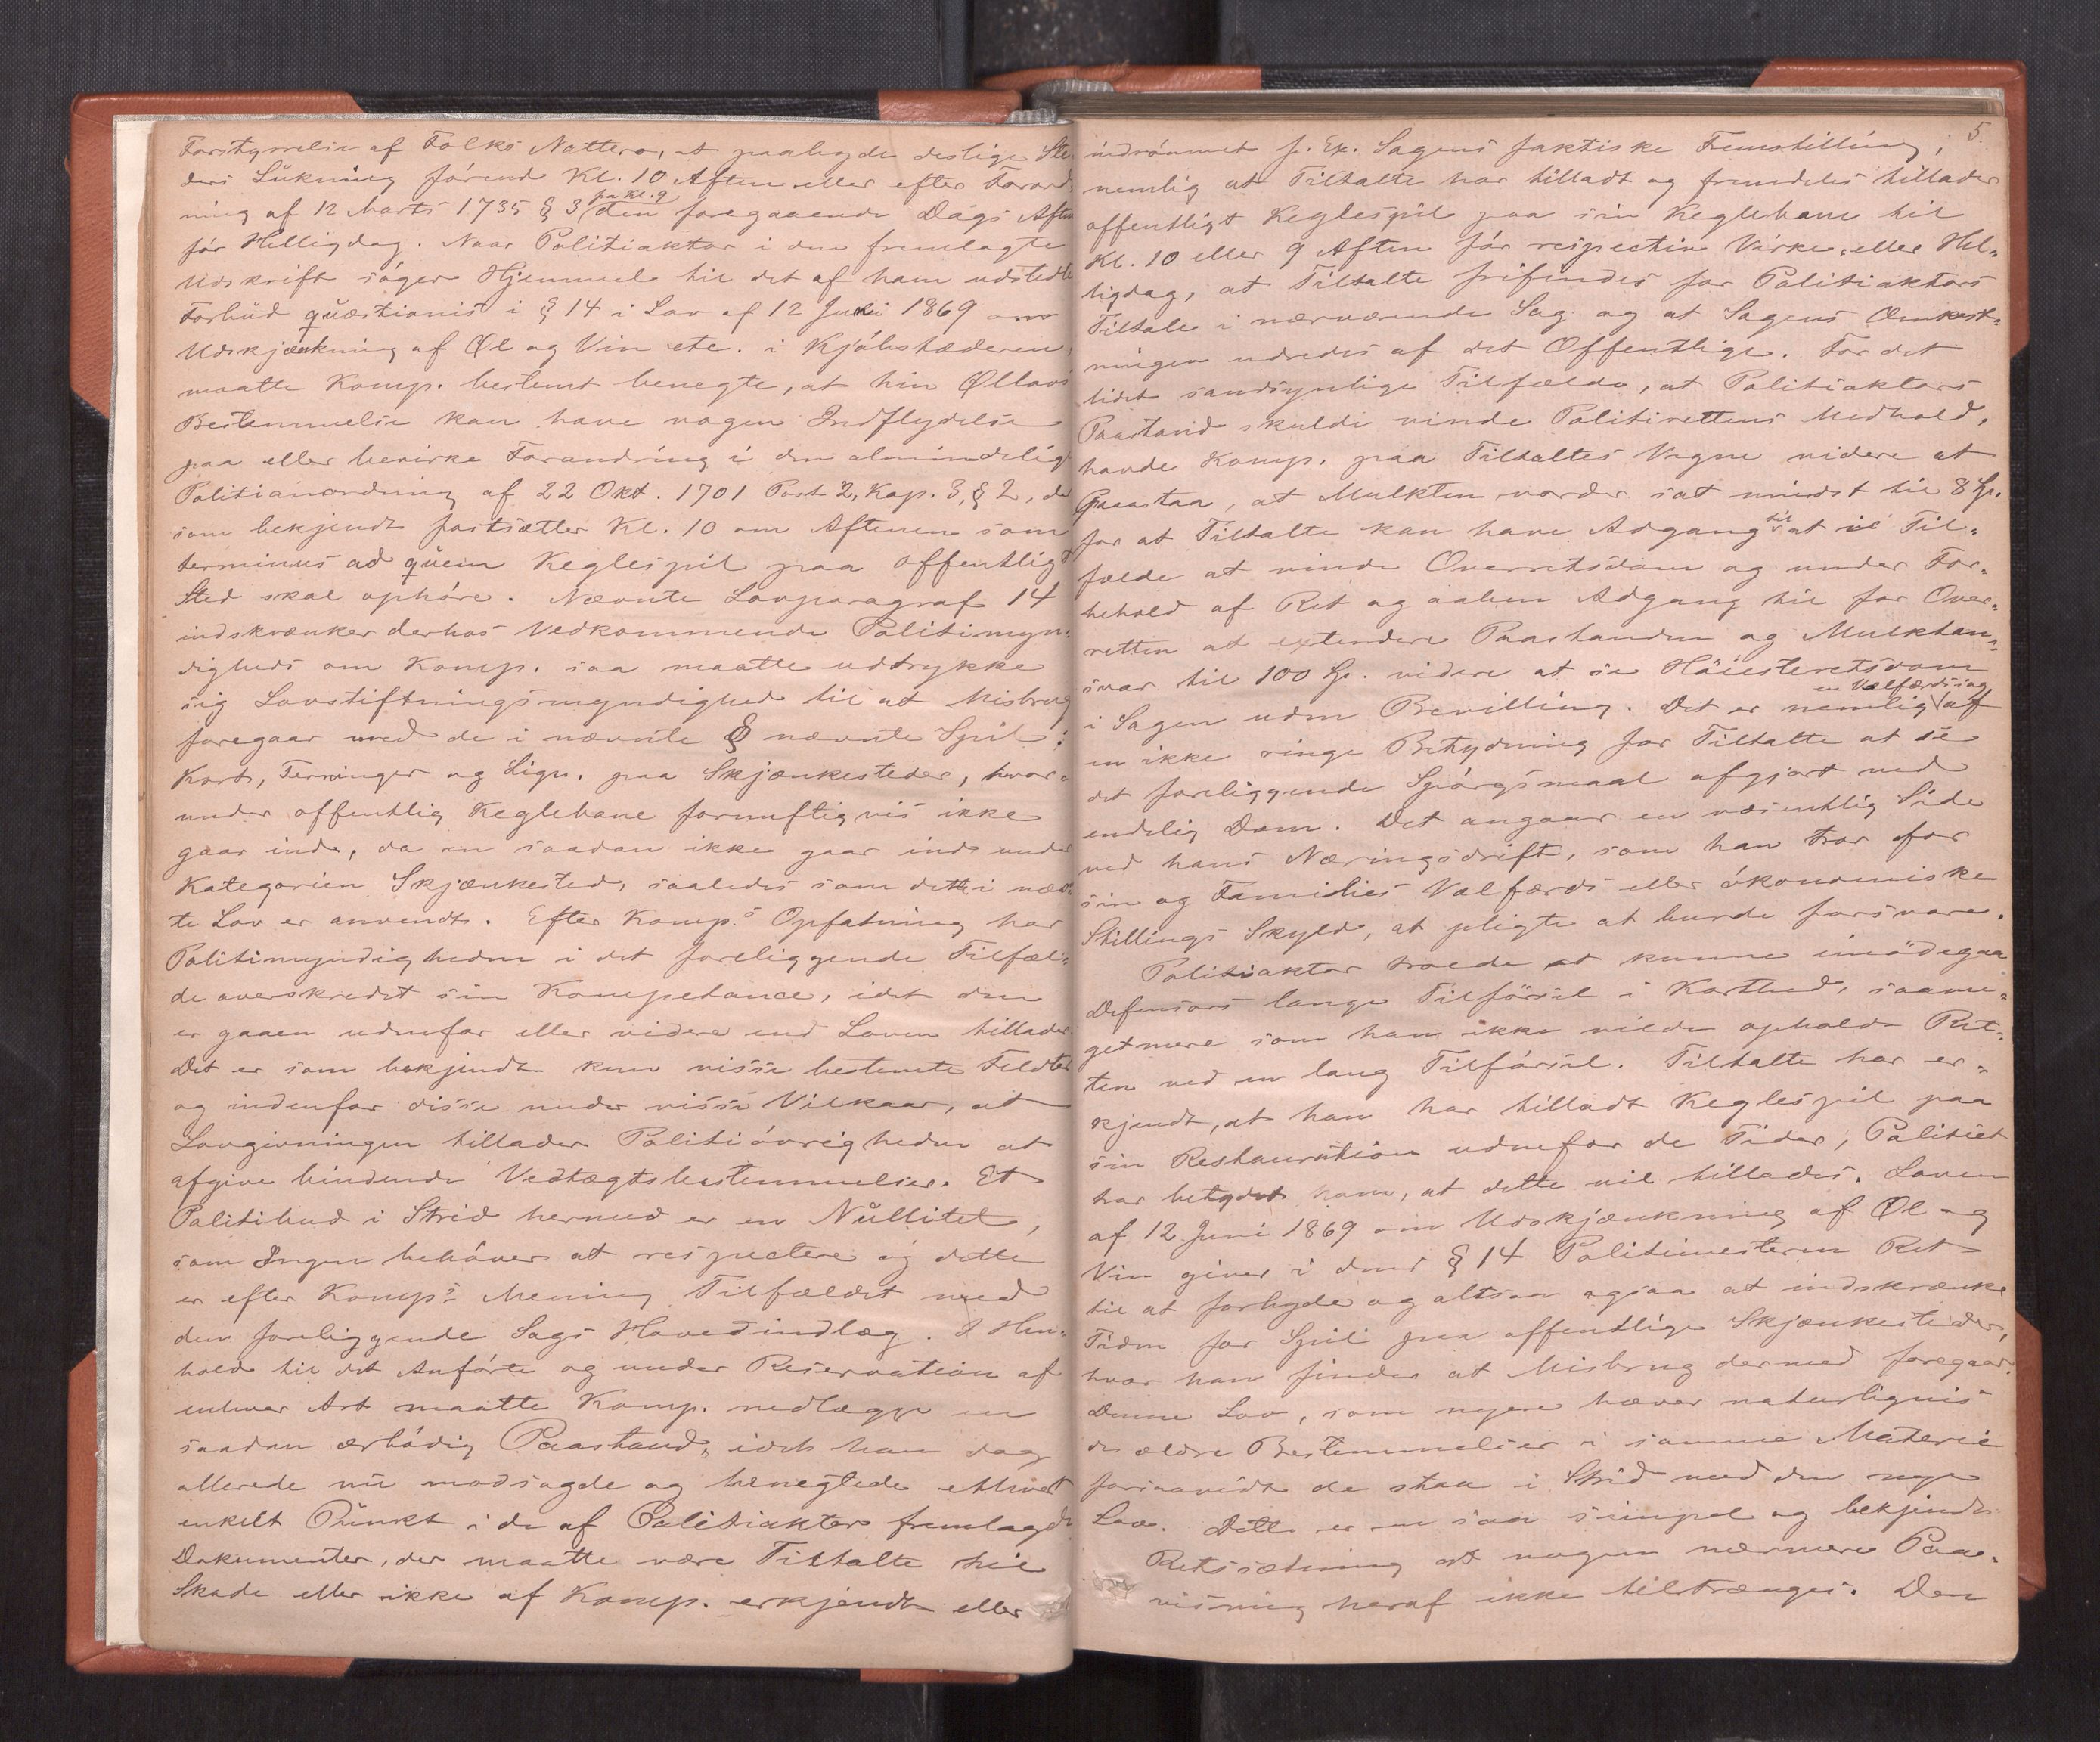 Forstyrrelse af Folks Nattero, at paabyde deslige Ste-
ders Lukning førend Kl. 10 Aften eller efter Forord-
fra Kl. 9
ning af 12 Marts 1735 § 3 den foregaaende Dags Aften
før Helligdag. Naar Politiaktor i den fremlagte
Udskrift søger Hjemmel til det af ham udstedte
Forbud quæstionis i § 14 i Lov af 12 Juni 1869 om
Udskjænkning af Øl og Vin etc. i Kjøbstæderen,
maatte Komp. bestemt benegte, at hin Øllovs
Bestemmelse kan have nogen Indflydelse
paa eller bevirke Forandring i den almindelige
Politianordning af 22 Okt. 1701 Post 2, Kap. 3, § 2, der
som bekjendt fastsætter Kl. 10 om Aftenen som
terminus ad quem Keglespil paa offentligt
Sted skal ophøre. Nævnte Lovparagraf 14
indskrænker derhos Vedkommende Politimyn-
digheds om Komp. saa maatte udtrykke
sig Lovstiftningsmyndighed til at Misbrug
foregaar med de i nævnte § nævnte Spil:
Kort, Terninger og Lign. paa Skjænkesteder, hvor-
under offentlig Keglebane fornuftigvis ikke
gaar ind, da en saadan ikke gaar ind under
Kategorien Skjænkested, saaledes som dette i nævn-
te Lov er anvendt. Efter Komp.s Opfatning har
Politimyndigheden i det foreliggende Tilfæl-
de overskredet sin Kompetance, idet den
er gaaen udenfor eller videre end Loven tillader.
Det er som bekjendt kun visse bestemte Feldter
og indenfor disse under visse Vilkaar, at
Lovgivningen tillader Politiøvrigheden at
afgive bindende Vedtægtsbestemmelser. Et
Politibud i Strid hermed er en Nullitet,
som Ingen behøver at respectere og dette
er efter Komp.s Mening Tilfældet med
den foreliggende Sags Hovedindlæg. I Hen-
hold til det Anførte og under Reservation af
enhver Art maatte Komp. nedlægge en
saadan ærbødig Paastand, idet han dog
allerede nu modsagde og benegtede ethvert
enkelt Punkt i de af Politiaktor fremlagde
Dokumenter, der maatte være Tiltalte til
Skade eller ikke af Komp. erkjendt eller
5.
indrømmet f. Ex. Sagens faktiske Fremstilling,
nemlig at Tiltalte har tilladt og fremdeles tillader
offentligt Keglespil paa sin Keglebane til
Kl. 10 eller 9 Aften før respective Virke- eller Hel-
ligdag, at Tiltalte frifindes for Politiaktors
Tiltale i nærværende Sag og at Sagens Omkost-
ninger udredes af det Offentlige. For det
lidet sandsynlige Tilfælde, at Politiaktors
Paastand skulde vinde Politirettens Medhold,
havde Komp. paa Tiltaltes Vegne videre at
Paastaa, at Mulkten vorder sat mindst til 8 Sp.
for at Tiltalte kan have Adgang til at i Til-
fælde at vinde Overretsdom og under For-
behold af Ret og aaben Adgang til for Over-
retten at extendere Paastanden og Mulktan-
svar til 100 Sp. videre at se Høiesteretsdom
en Velfærdssag
i Sagen uden Bevilling. Det er nemlig af
en ikke ringe Betydning for Tiltalte at se
det foreliggende Spørgsmaal afgjort ved
endelig Dom. Det angaar en væsentlig Side
ved hans Næringsdrift, som han tror for
sin og Families Velfærds eller økonomiske
Stillings Skyld, at pligte at burde forsvare.
Politiaktor troede at kunne imødegaa
Defensors lange Tilførsel i Korthed, saame-
get mere som han ikke vilde opholde Ret-
ten ved en lang Tilførsel. Tiltalte har er-
kjendt, at han har tilladt Keglespil paa
sin Restauration udenfor de Tider, Politiet
har betydet ham, at dette vil tillades. Loven
af 12 Juni 1869 om Udskjænkning af Øl og
Vin giver i dens § 14 Politimesteren Ret
til at forbyde og altsaa ogsaa at indskrænke
Tiden for Spil paa offentlige Skjænkesteder,
hvor han finder at Misbrug dermed foregaar.
Denne Lov, som nyere hæver naturligvis
de ældre Bestemmelser i samme Materie
forsaavidt de staa i Strid med den nye
Lov. Dette er en saa simpel og bekjendt
Retssætning at nogen nærmere Paa-
visning heraf ikke tiltrænges. Den